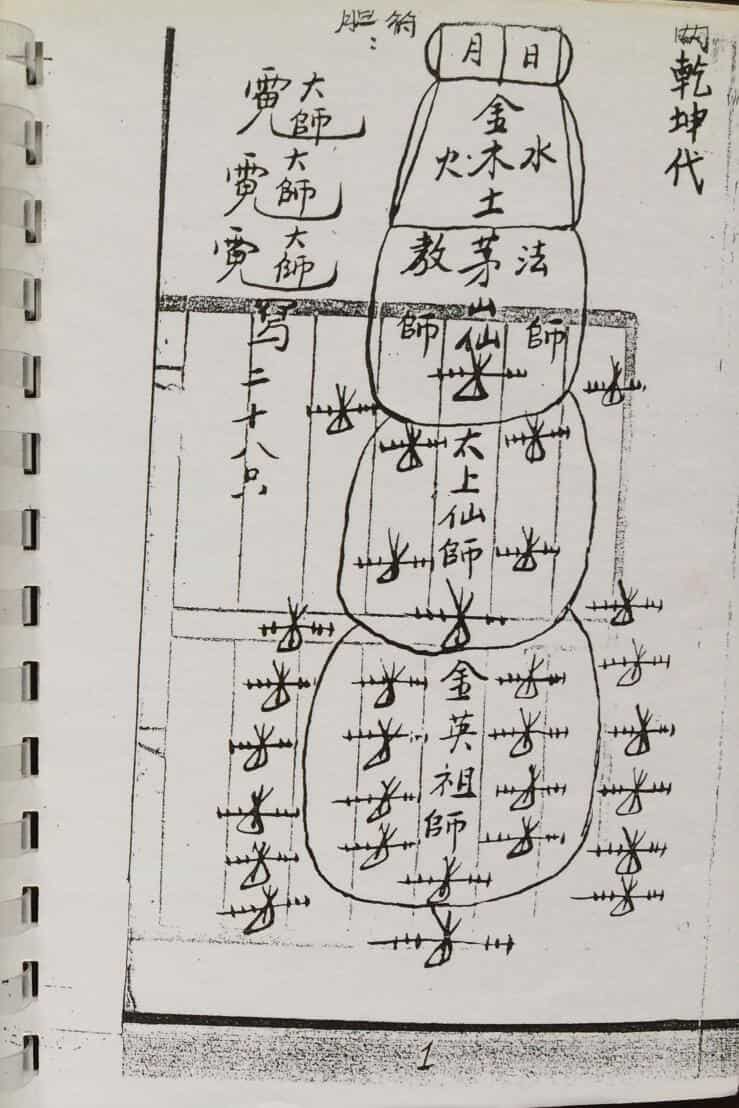 乾坤代
符胆：
日
月
水
金木土
火
法師
茅山仙
教師
太上仙師
金英祖師
大師
大師
大師
寫二十八只
1